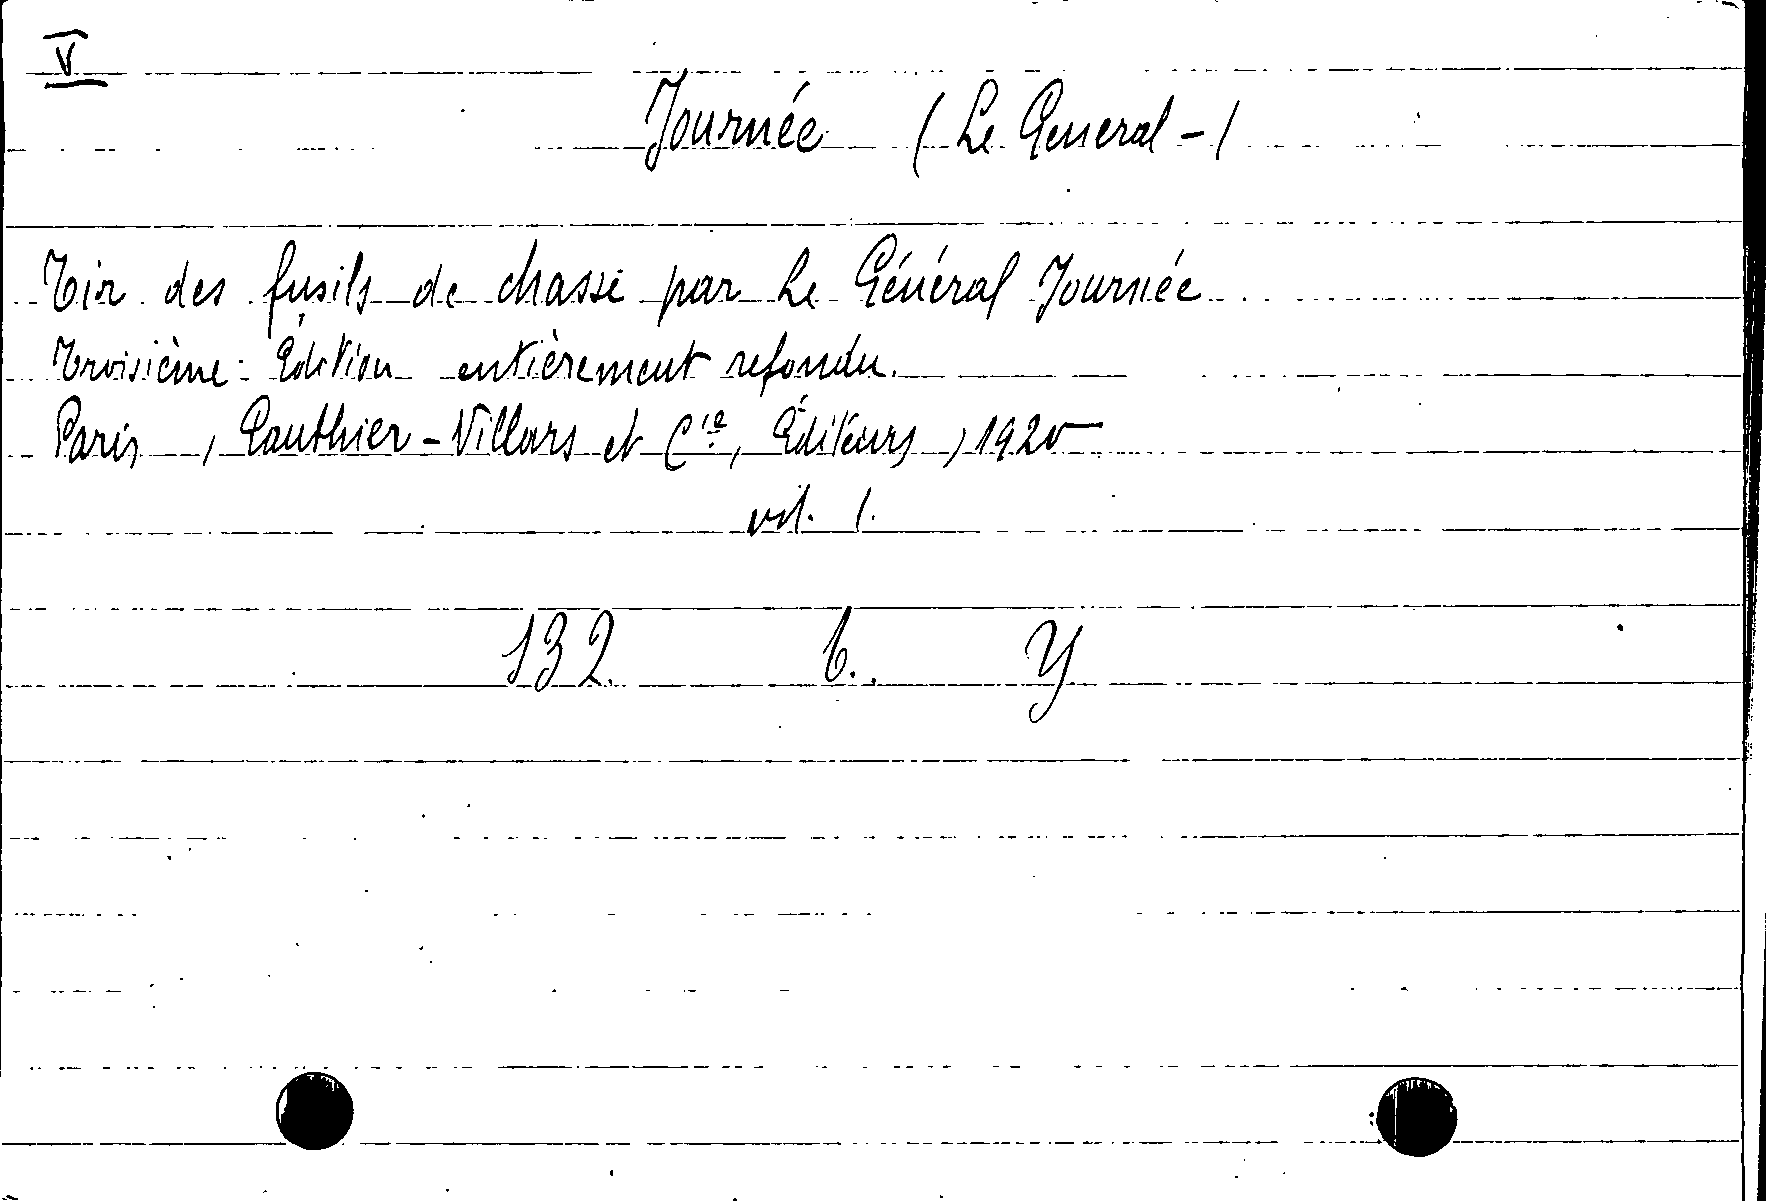 V
Journée (Le General -)
Tir des fusils de chasse par Le Général Journée
Troisième Édition entièrement refondu.
Paris, Gauthier-Villars et Cie, Éditeurs, 1920
vol. 1.
132. 6. Y